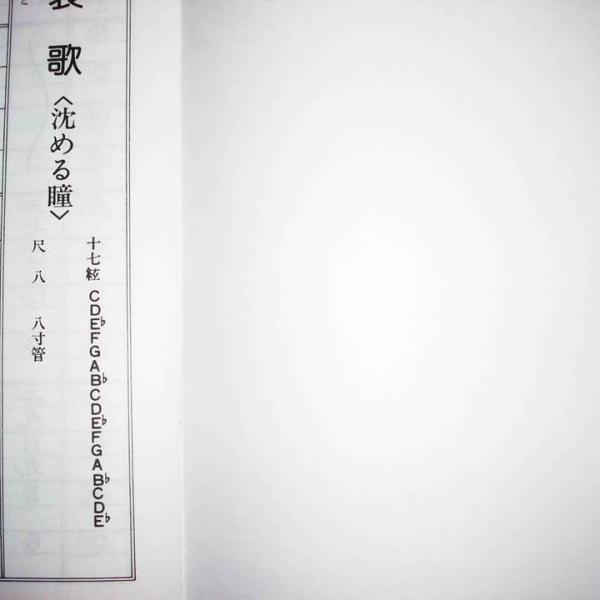 歌
〈沈める瞳〉
十七絃 CDE♭FGAB♭CDE♭FGAB♭CDE♭
尺八 八寸管